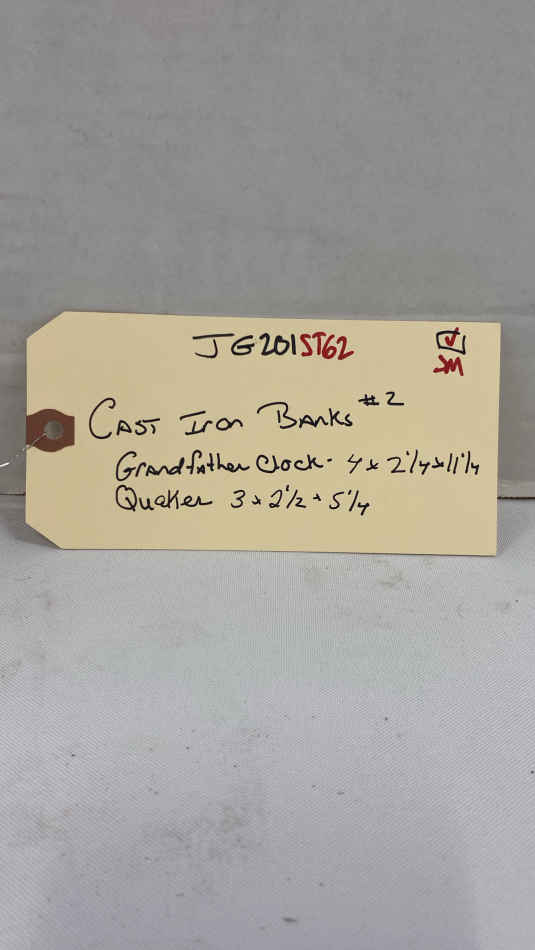 JG201ST62
SM
Cast Iron Banks #2
Grandfather Clock - 4 x 2 1/4 x 11 1/4
Quaker 3 x 2 1/2 x 5 1/4